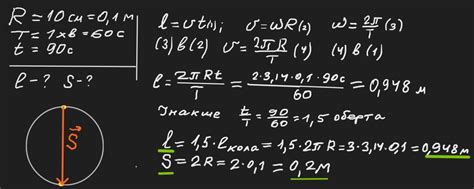 R = 10см = 0,1м
T = 1хв = 60с
t = 90с
l - ? S - ?
l = υt (1); υ = ωR (2) ω = 2π/T (3)
(3) в (2) υ = 2πR/T (4) (4) в (1)
l = 2πRt/T = 2·3,14·0,1·90с/60 = 0,948 м
Інакше t/T = 90/60 = 1,5 оберта
l = 1,5·l кола = 1,5·2πR = 3·3,14·0,1 = 0,948м
S = 2R = 2·0,1 = 0,2м
S⃗